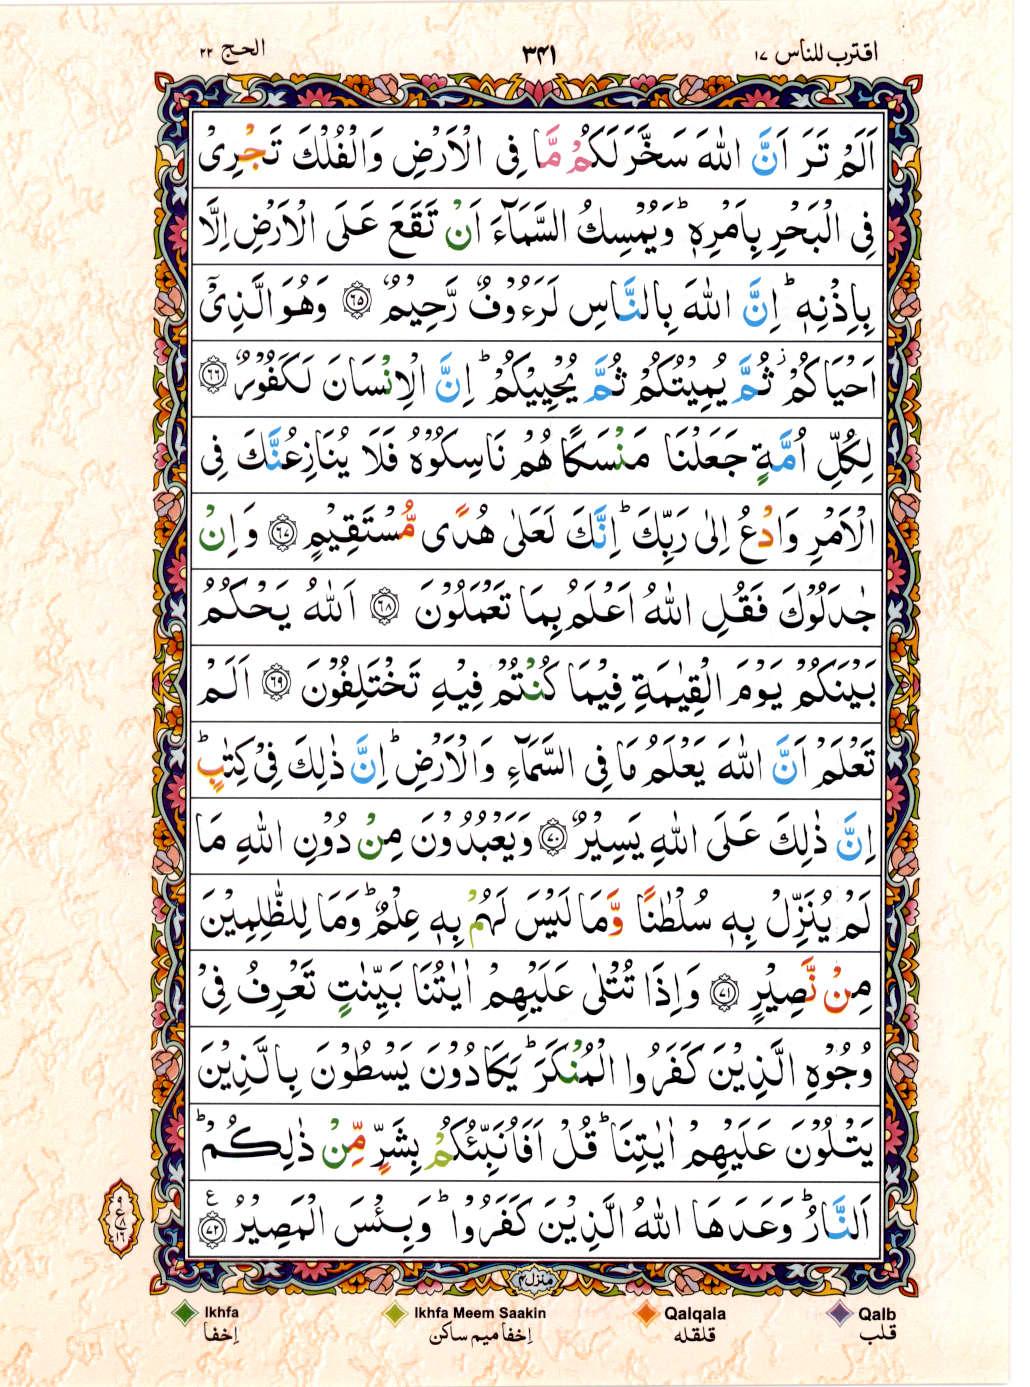 اقترب للناس ١٧
٣٤١
الحج ٢٢
اَلَمۡ تَرَ اَنَّ اللّٰهَ سَخَّرَ لَكُمۡ مَّا فِى الۡاَرۡضِ وَالۡفُلۡكَ تَجۡرِىۡ
فِى الۡبَحۡرِ بِاَمۡرِهٖ ؕ وَيُمۡسِكُ السَّمَآءَ اَنۡ تَقَعَ عَلَى الۡاَرۡضِ اِلَّا
بِاِذۡنِهٖ ؕ اِنَّ اللّٰهَ بِالنَّاسِ لَرَءُوۡفٌ رَّحِيۡمٌ ﴿٦٥﴾ وَهُوَ الَّذِىۡۤ
اَحۡيَاكُمۡ ۡ ثُمَّ يُمِيۡتُكُمۡ ثُمَّ يُحۡيِيۡكُمۡ ؕ اِنَّ الۡاِنۡسَانَ لَـكَفُوۡرٌ ﴿٦٦﴾
لِكُلِّ اُمَّةٍ جَعَلۡنَا مَنۡسَكًا هُمۡ نَاسِكُوۡهُ فَلَا يُنَازِعُنَّكَ فِى
الۡاَمۡرِ وَادۡعُ اِلٰى رَبِّكَ ؕ اِنَّكَ لَعَلٰى هُدًى مُّسۡتَقِيۡمٍ ﴿٦٧﴾ وَاِنۡ
جٰدَلُوۡكَ فَقُلِ اللّٰهُ اَعۡلَمُ بِمَا تَعۡمَلُوۡنَ ﴿٦٨﴾ اَللّٰهُ يَحۡكُمُ
بَيۡنَكُمۡ يَوۡمَ الۡقِيٰمَةِ فِيۡمَا كُنۡتُمۡ فِيۡهِ تَخۡتَلِفُوۡنَ ﴿٦٩﴾ اَلَمۡ
تَعۡلَمۡ اَنَّ اللّٰهَ يَعۡلَمُ مَا فِى السَّمَآءِ وَالۡاَرۡضِ ؕ اِنَّ ذٰلِكَ فِىۡ كِتٰبٍ ؕ
اِنَّ ذٰلِكَ عَلَى اللّٰهِ يَسِيۡرٌ ﴿٧٠﴾ وَيَعۡبُدُوۡنَ مِنۡ دُوۡنِ اللّٰهِ مَا
لَمۡ يُنَزِّلۡ بِهٖ سُلۡطٰنًا وَّمَا لَيۡسَ لَهُمۡ بِهٖ عِلۡمٌ ؕ وَمَا لِلظّٰلِمِيۡنَ
مِنۡ نَّصِيۡرٍ ﴿٧١﴾ وَاِذَا تُتۡلٰى عَلَيۡهِمۡ اٰيٰتُنَا بَيِّنٰتٍ تَعۡرِفُ فِىۡ
وُجُوۡهِ الَّذِيۡنَ كَفَرُوا الۡمُنۡكَرَ ؕ يَكَادُوۡنَ يَسۡطُوۡنَ بِالَّذِيۡنَ
يَتۡلُوۡنَ عَلَيۡهِمۡ اٰيٰتِنَا ؕ قُلۡ اَفَاُنَبِّئُكُمۡ بِشَرٍّ مِّنۡ ذٰلِكُمۡ ؕ
اَلنَّارُ ؕ وَعَدَهَا اللّٰهُ الَّذِيۡنَ كَفَرُوۡا ؕ وَبِئۡسَ الۡمَصِيۡرُ ﴿٧٢﴾ ع
٩
ع ٨
١٦
منزل ٤
Ikhfa
Ikhfa Meem Saakin
Qalqala
Qalb
إخفا
إخفا ميم ساكن
قلقله
قلب